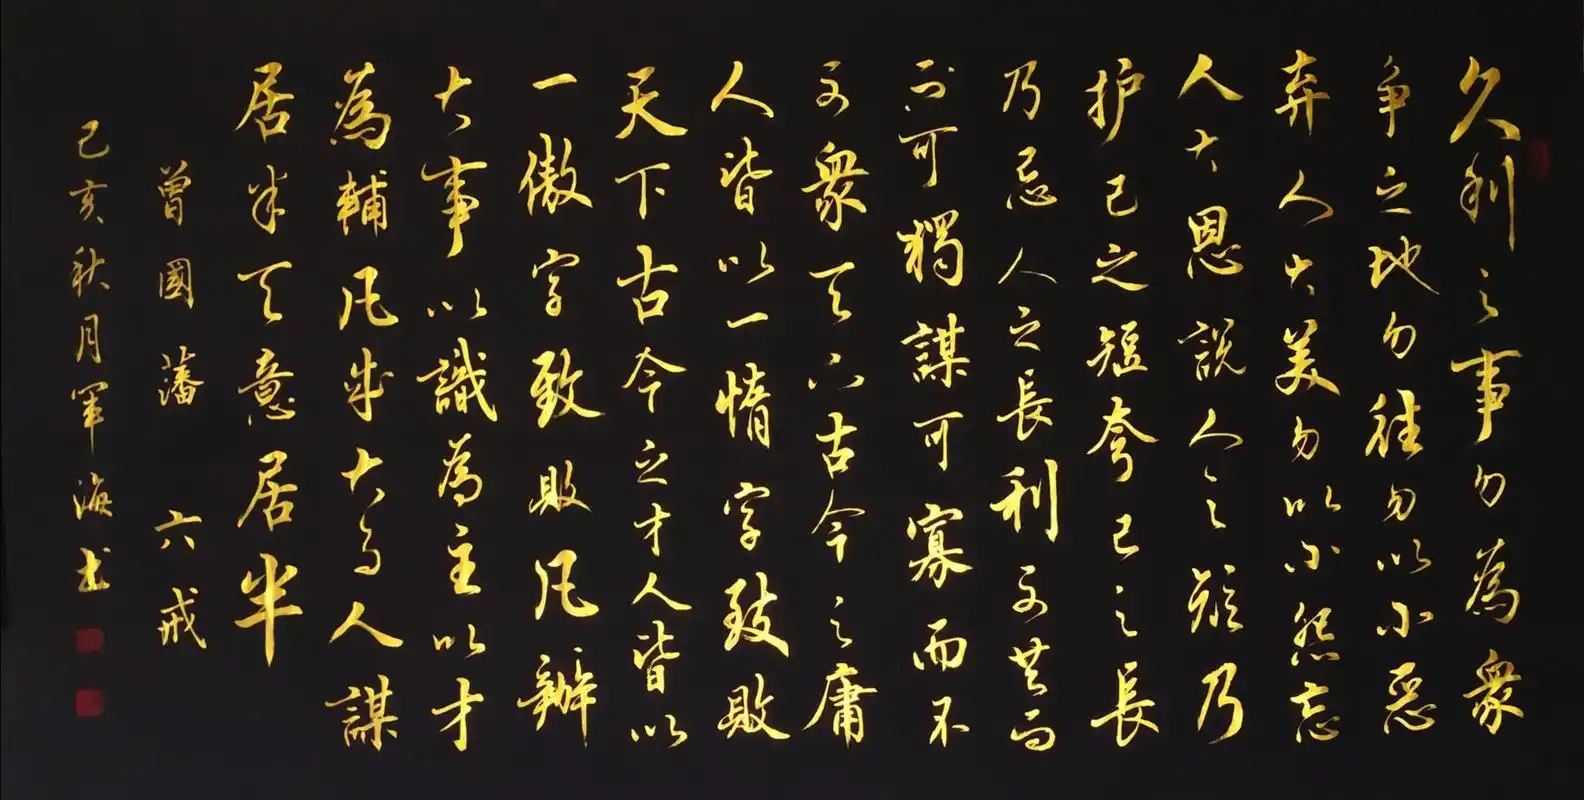 久利之事勿為衆
爭之地勿往勿以小惡
弃人大美勿以小怨忘
人大恩說人之短乃
护己之短夸己之長
乃忌人之長利可共而
不可獨謀可寡而不
可衆天下古今之庸
人皆以一惰字致敗
天下古今之才人皆以
一傲字致敗凡辦
大事以識為主以才
為輔凡成大事人謀
居半天意居半
曾國藩 六戒
己亥秋月軍海书